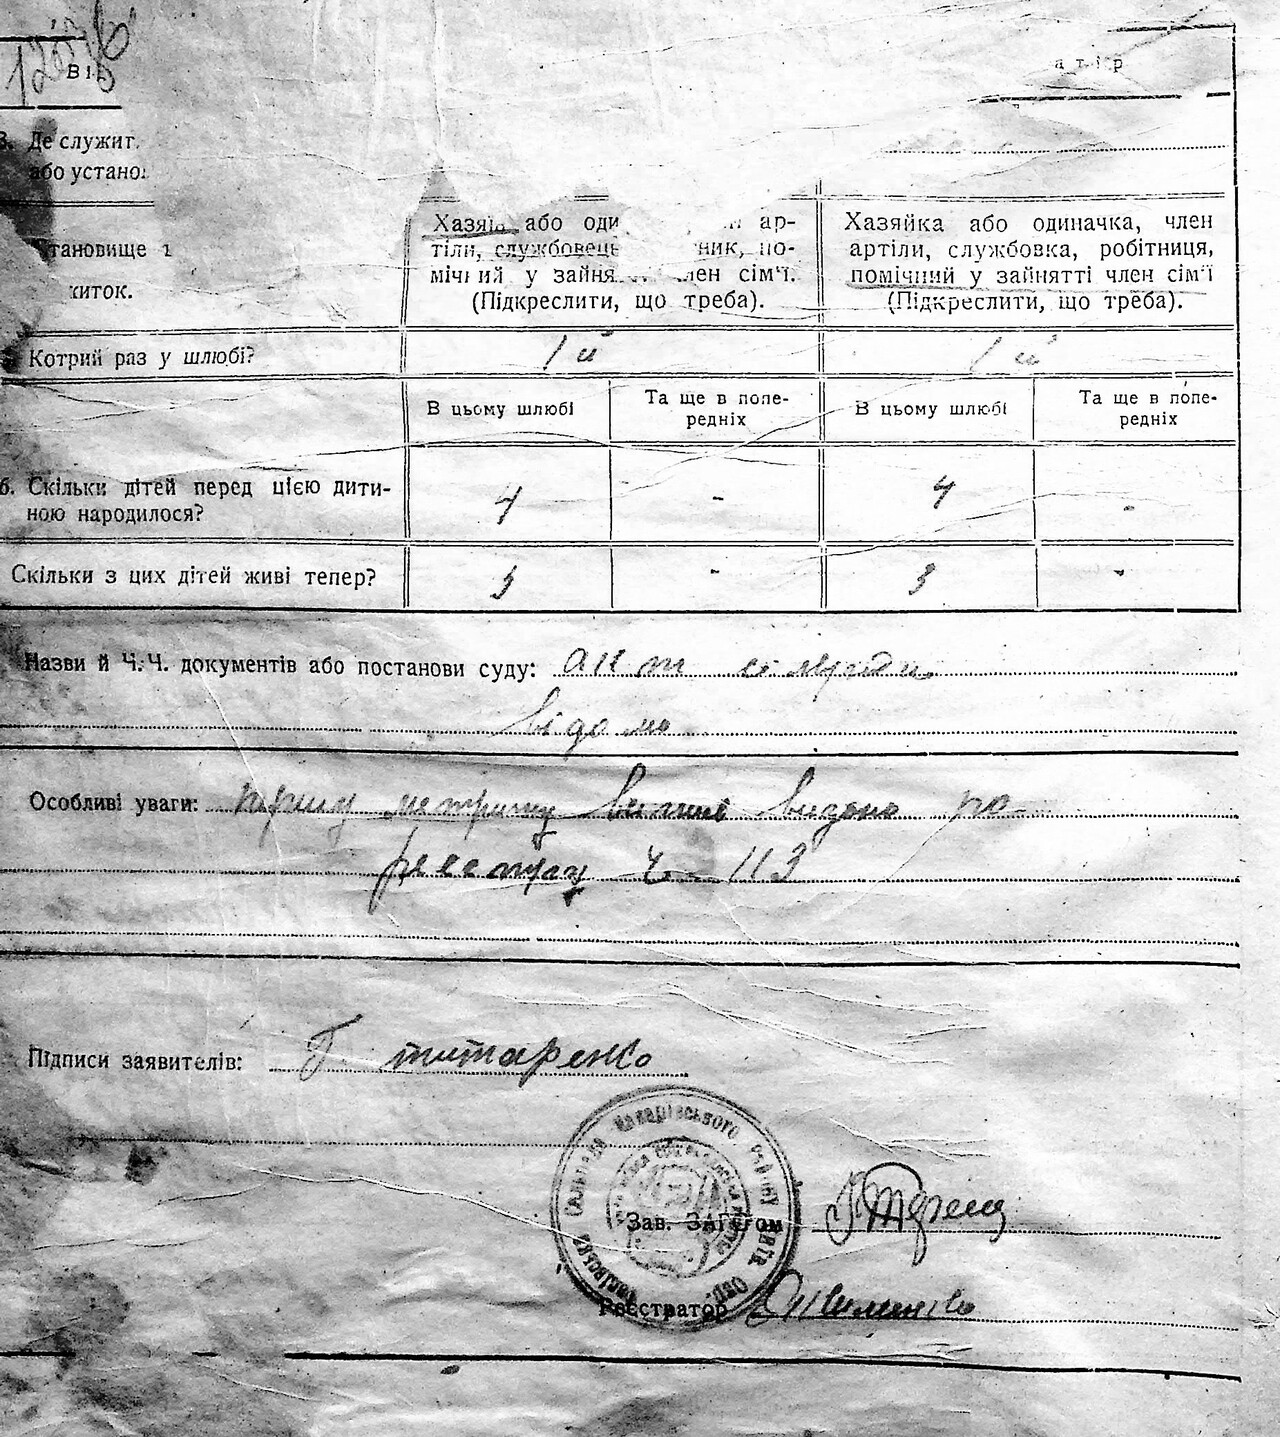 а т і р
Де служит
або устано
Хазяїн або оди ар-
тіли, службовець ник, по-
мічний у зайня член сім'ї.
(Підкреслити, що треба).
Хазяйка або одиначка, член
артіли, службовка, робітниця,
помічний у зайнятті член сім'ї
(Підкреслити, що треба).
тановище
житток.
Котрий раз у шлюбі?
1й
1й
В цьому шлюбі
Та ще в попе-
редніх
В цьому шлюбі
Та ще в попе-
редніх
6. Скільки дітей перед цією дити-
ною народилося?
4
-
4
-
Скільки з цих дітей живі тепер?
3
-
3
-
Назви й Ч.Ч. документів або постанови суду:
відомо
Особливі уваги: метрику видано по
реєстру ч 113
Підписи заявителів: Титаренко
Макарівського району Київ. Обл.
Зав. ЗАГСом
Реєстратор